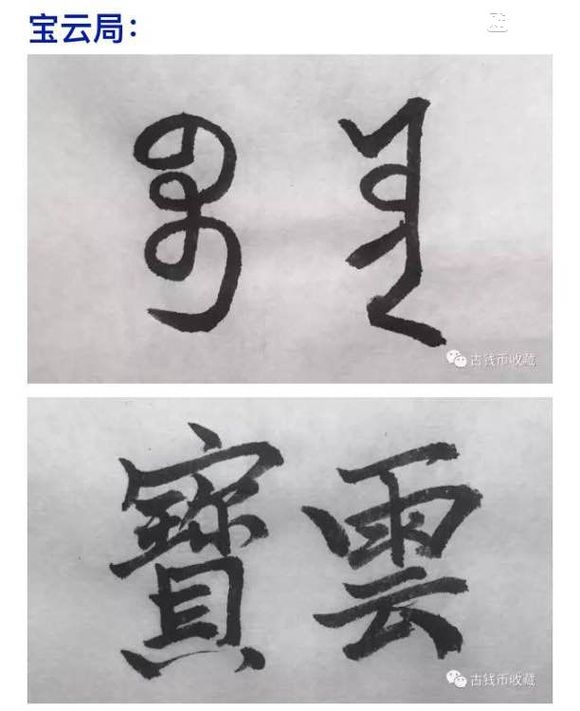 宝云局：
ᠪᠣᠣ ᠶᡠᠨ
古钱币收藏
寶雲
古钱币收藏